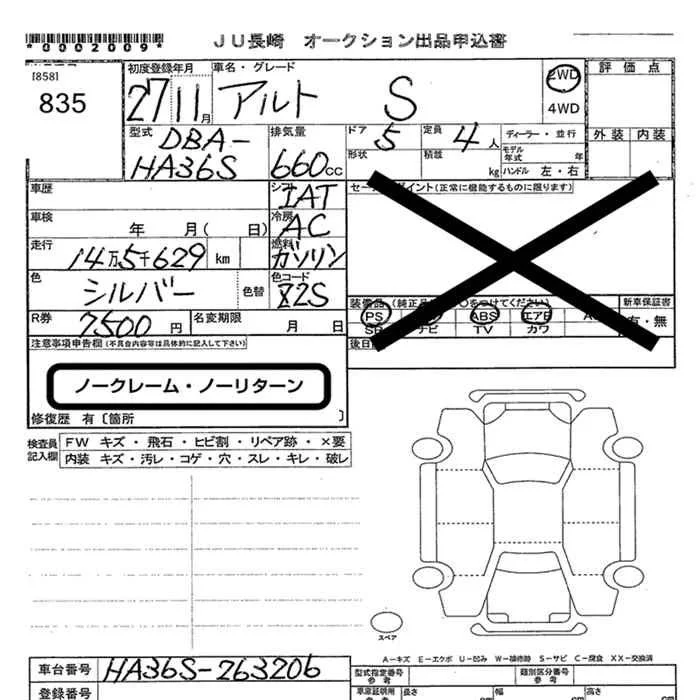 *0002009*
JU長崎 オークション出品申込書
[858]
835
初度登録年月 27 11月
車名・グレード アルト S
2WD
4WD
評価点
外装 内装
型式 DBA-HA36S
排気量 660cc
ドア 5
定員 4人
形状
積載 kg
ディーラー・並行
モデル年式 年
ハンドル 左・右
車歴
シフト IAT
車検 年 月( 日)
冷房 AC
走行 14万5千629 km
燃料 ガソリン
色 シルバー
色替
色コード Z2S
R券 7,500円
名変期限 月 日
イント(正常に機能するものに限ります)
装備品(純正品 ○をつけてください)
新車保証書
有・無
PS
ABS
エアB
ナビ
TV
カワ
後日
注意事項申告欄(不具合内容等は具体的に記入して下さい)
ノークレーム・ノーリターン
修復歴 有〔箇所 〕
検査員記入欄
FW キズ・飛石・ヒビ割・リペア跡・×要
内装 キズ・汚レ・コゲ・穴・スレ・キレ・破レ
スペア
A-キズ E-エクボ U-凹み W-補修跡 S-サビ C-腐食 XX-交換済
車台番号 HA36S-263206
登録番号
型式指定番号 参考
類別区分番号 参考
車庫証明用
長さ cm
幅 cm
高さ cm